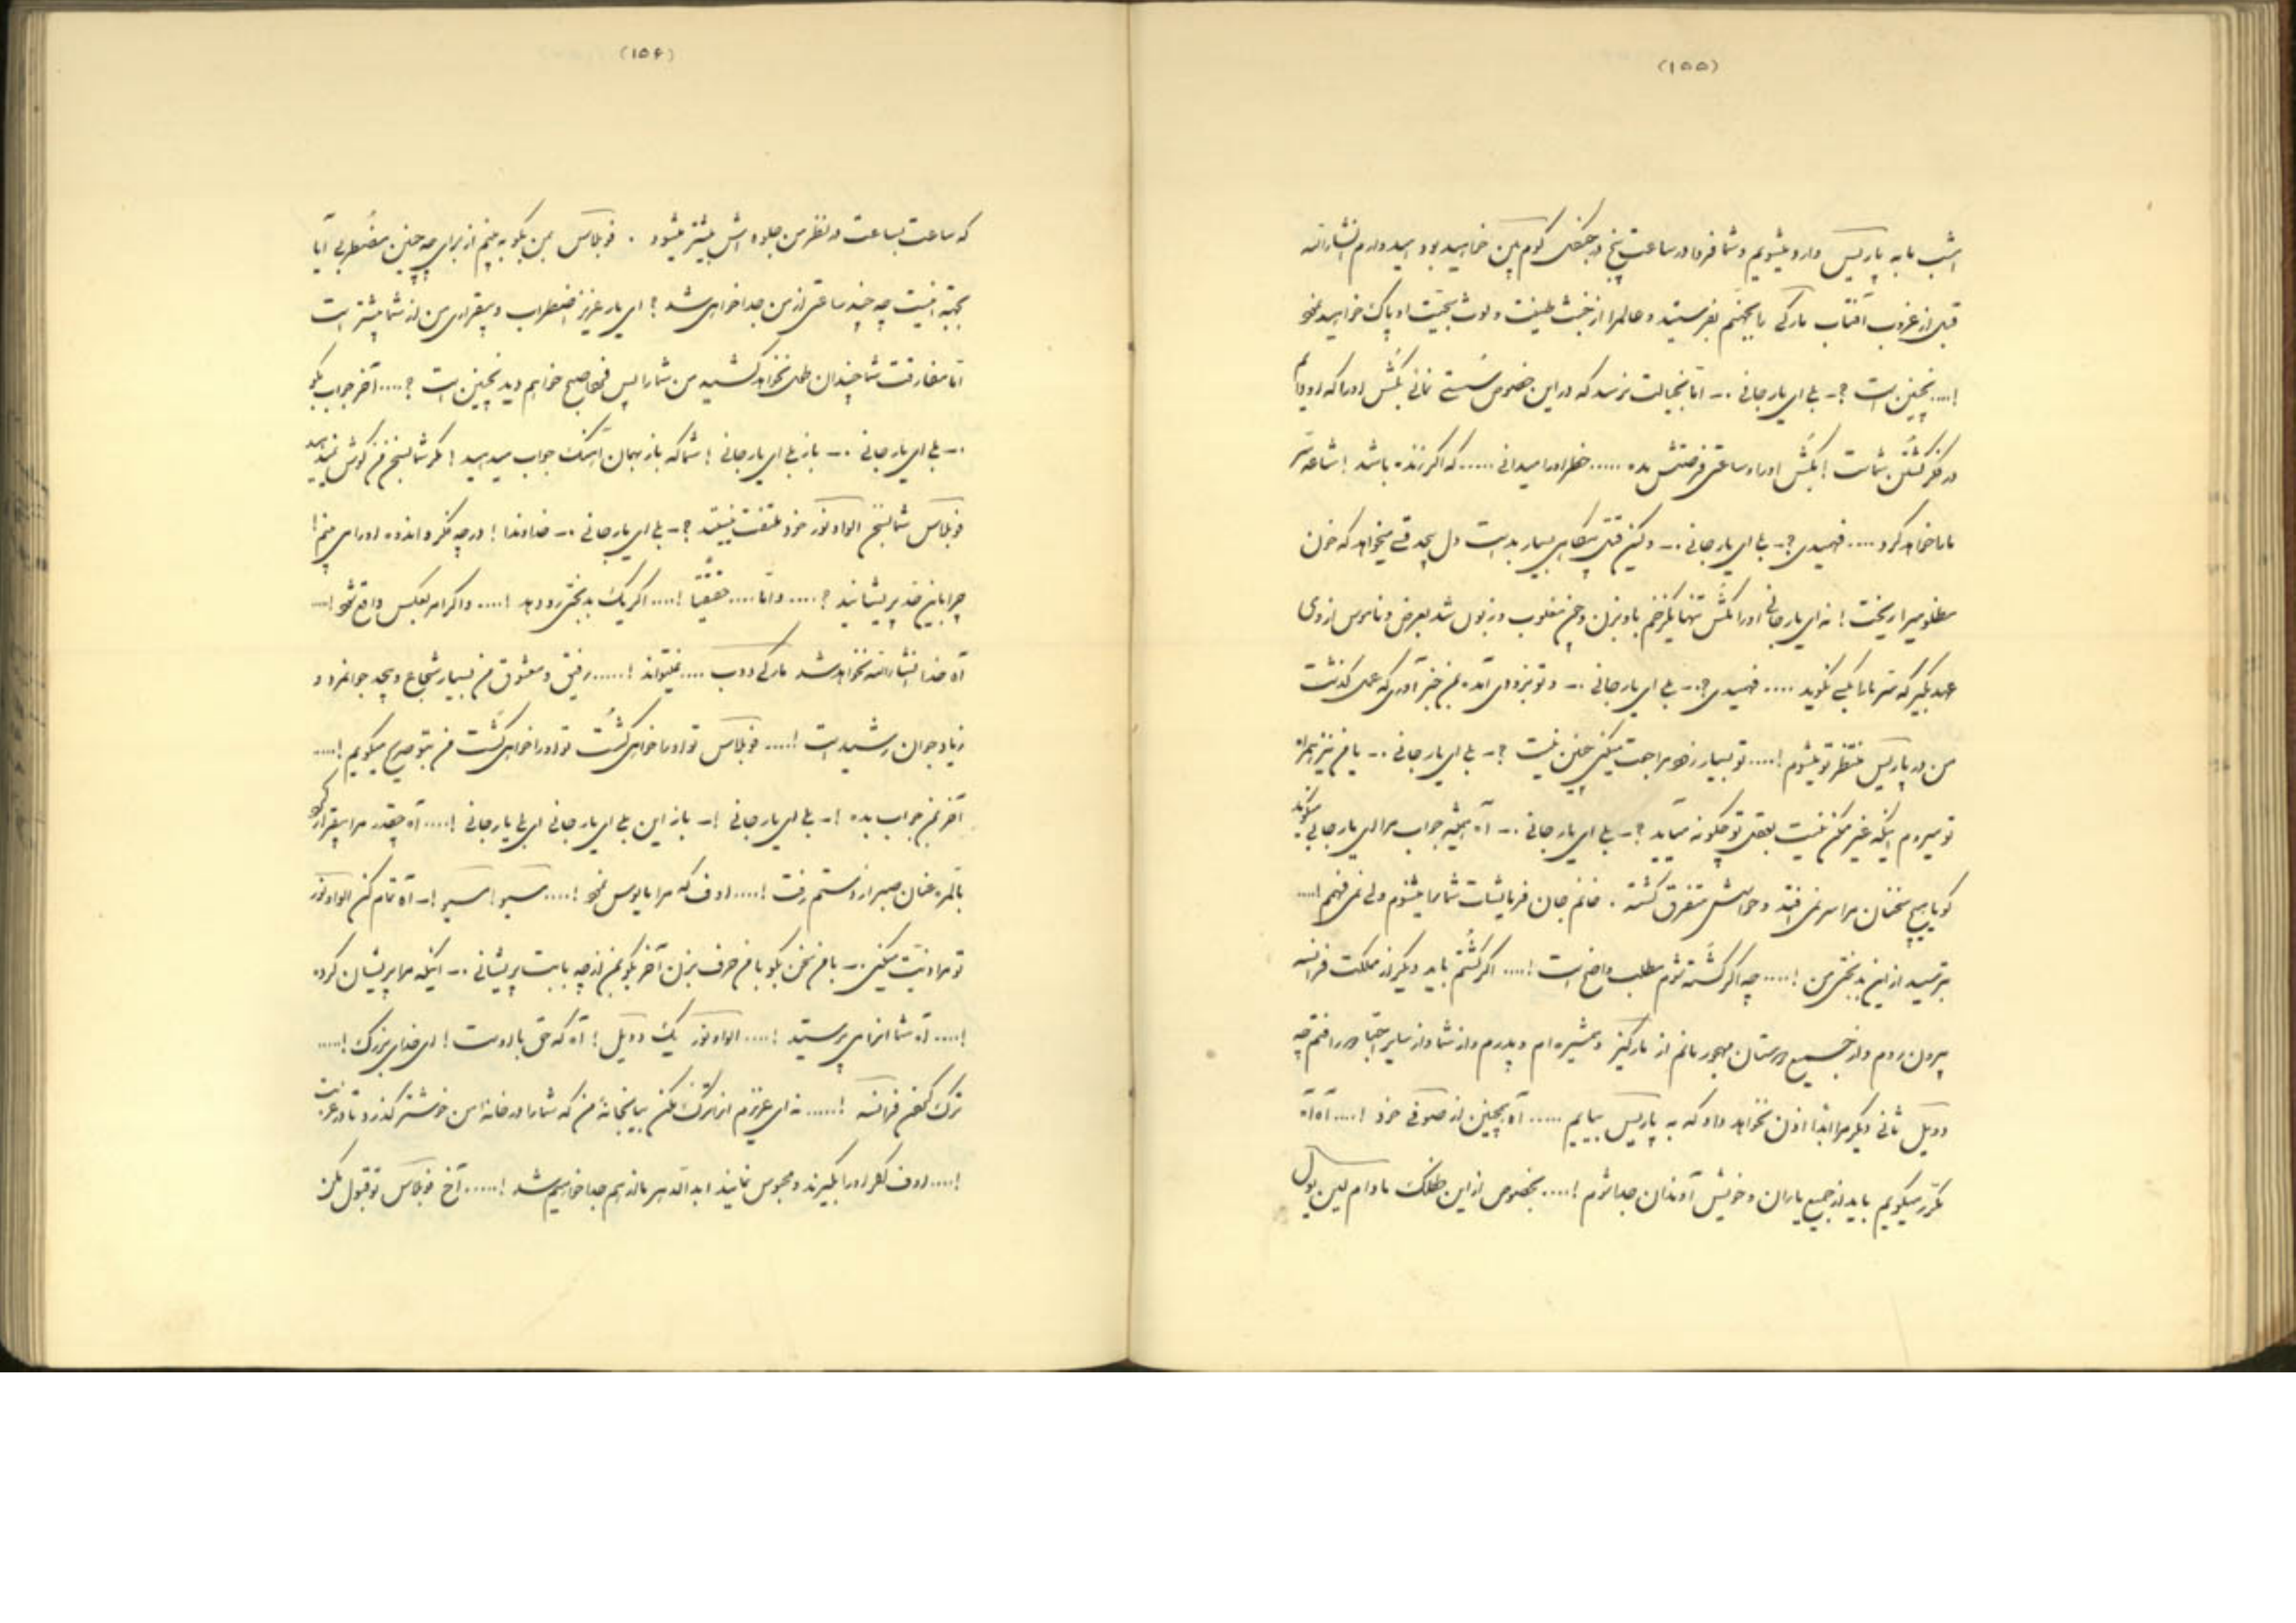 (۱۵۵)
امشب ما به پاریس وارد میشویم و شما فردا در ساعت پنج در جنگل خواهید بود امیدوارم انشاءالله
قبل از غروب آفتاب مارکی را بجهنم بفرستید و عالم را از خبث طینت و لوث او پاک خواهید نمود
!.... نچنین است ؟- بلی ای یار جانی .- اما بخیالت نرسد که در این خصوص سستی نمائی بکش او را که او دایم
در فکر کشتن شماست ! بکش او را و ساعتی فرصتش مده ..... خطر او را میدانی ..... که اگر زنده باشد !
ما را خواهد کرد .... فهمیدی ؟- بلی ای یار جانی .- ولیکن قتل بسیار بد است دل بچه قسم میخواهد که خون
مظلومیرا ریخت ! نه ای یار جانی او را مکش تنها یکزخم باو بزن و چون مغلوب و زبون شد بعرض و ناموس از وی
عهد بگیر که سر ما را بکسی نگوید .... فهمیدی ؟.- بلی ای یار جانی .- و تو بزودی آمده بمن خبر آوری که عمل گذشت
من در پاریس منتظر تو میشوم !.... تو بسیار زود مراجعت میکنی چنین نیست ؟- بلی ای یار جانی .- یا من نیز همراه
تو میروم اینکه غیر ممکن نیست بعقل تو چگونه میآید ؟- بلی ای یار جانی .- آه همیشه جواب مرا ای یار جانی میگوید
گویا هیچ سخنان مرا سر نمی افتد و حواسش متفرق گشته . خانم جان فرمایشات شما را میشنوم ولی نمی فهمم !....
بترسید از این بدبختی من !.... چه اگر کشته شوم مطلب واضح است !.... اگر کشتم باید دیگر از مملکت فرانسه
بیرون روم و از جمیع دوستان مهجور مانم از مارکیز و همشیره ام و پدرم و از شما و از سایر احبا دور افتم چه
دویل ثانی دیگر مرا ابداً اذن نخواهد داد که به پاریس بیایم ..... آه همچنین از خود !.... آه آه
مکرر میگویم باید از جمیع یاران و خویش آوندان جدا شوم !.... بخصوص از این طفلک مادام
(۱۵۶)
که ساعت بساعت در نظر من جلوه اش بیشتر میشود . بمن بگو به بینم از برای چه چنین مضطربی آیا
بجهة اینست چه چند ساعتی از من جدا خواهی شد ؟ ای یار عزیز اضطراب و بیقراری من از شما بیشتر است
اما مفارقت شما چندان طول نخواهد کشید من شما را پس فردا صبح خواهم دید نچنین است ؟.... آخر جواب بگو
.- بلی ای یار جانی .- باز بلی ای یار جانی ! شما که باز بهمان آهنگ جواب میدهید ! مگر شما بسخن من گوش نمیدهید
شما بسخن الواونور خود ملتفت نیستید ؟- بلی ای یار جانی .- خداوندا ! در چه فکر و اندوه او را می بینم !
چرا باینقدر پریشانید ؟.... و اما .... حقیقتاً !.... اگر یک بدبختی رو دهد !.... و اگر امر بعکس واقع شود !...
آه خدا انشاءالله نخواهد شد مارکی دوب .... نمیتواند !..... رفیق و معشوق من بسیار شجاع و بیحد جوانمرد و
زیاد جوان رشید است !.... تو او را خواهی کشت تو او را خواهی کشت من بتو صریح میگویم !....
آخر بمن جواب بده !- بلی ای یار جانی !- باز این بلی ای یار جانی ای بلی یار جانی !.... آه چقدر مرا بیقرار کرد
بالمره عنان صبر از دستم رفت !.... اوف که مرا مأیوس نمود !.... مسیو ! مسیو !- آه تمام کن الواونور
تو مرا اذیت میکنی .- با من سخن بگو با من حرف بزن آخر بگو بمن از چه بابت پریشانی .- اینکه مرا پریشان کرده
!.... آه شما آنرا می پرسید !.... الواونور یک دویل ! آه که حق با اوست ! ای خدای بزرگ !....
ترک گفتن فرانسه !..... نه ای عزیزم آنرا ترک مکن بیا بخانهٔ من که شما را در خانهٔ من خوشتر گذرد تا در غربت
!.... اوف اگر او را بگیرند و محبوس نمایند ابد الدهر ما از هم جدا خواهیم شد !..... آخ تو قبول مکن